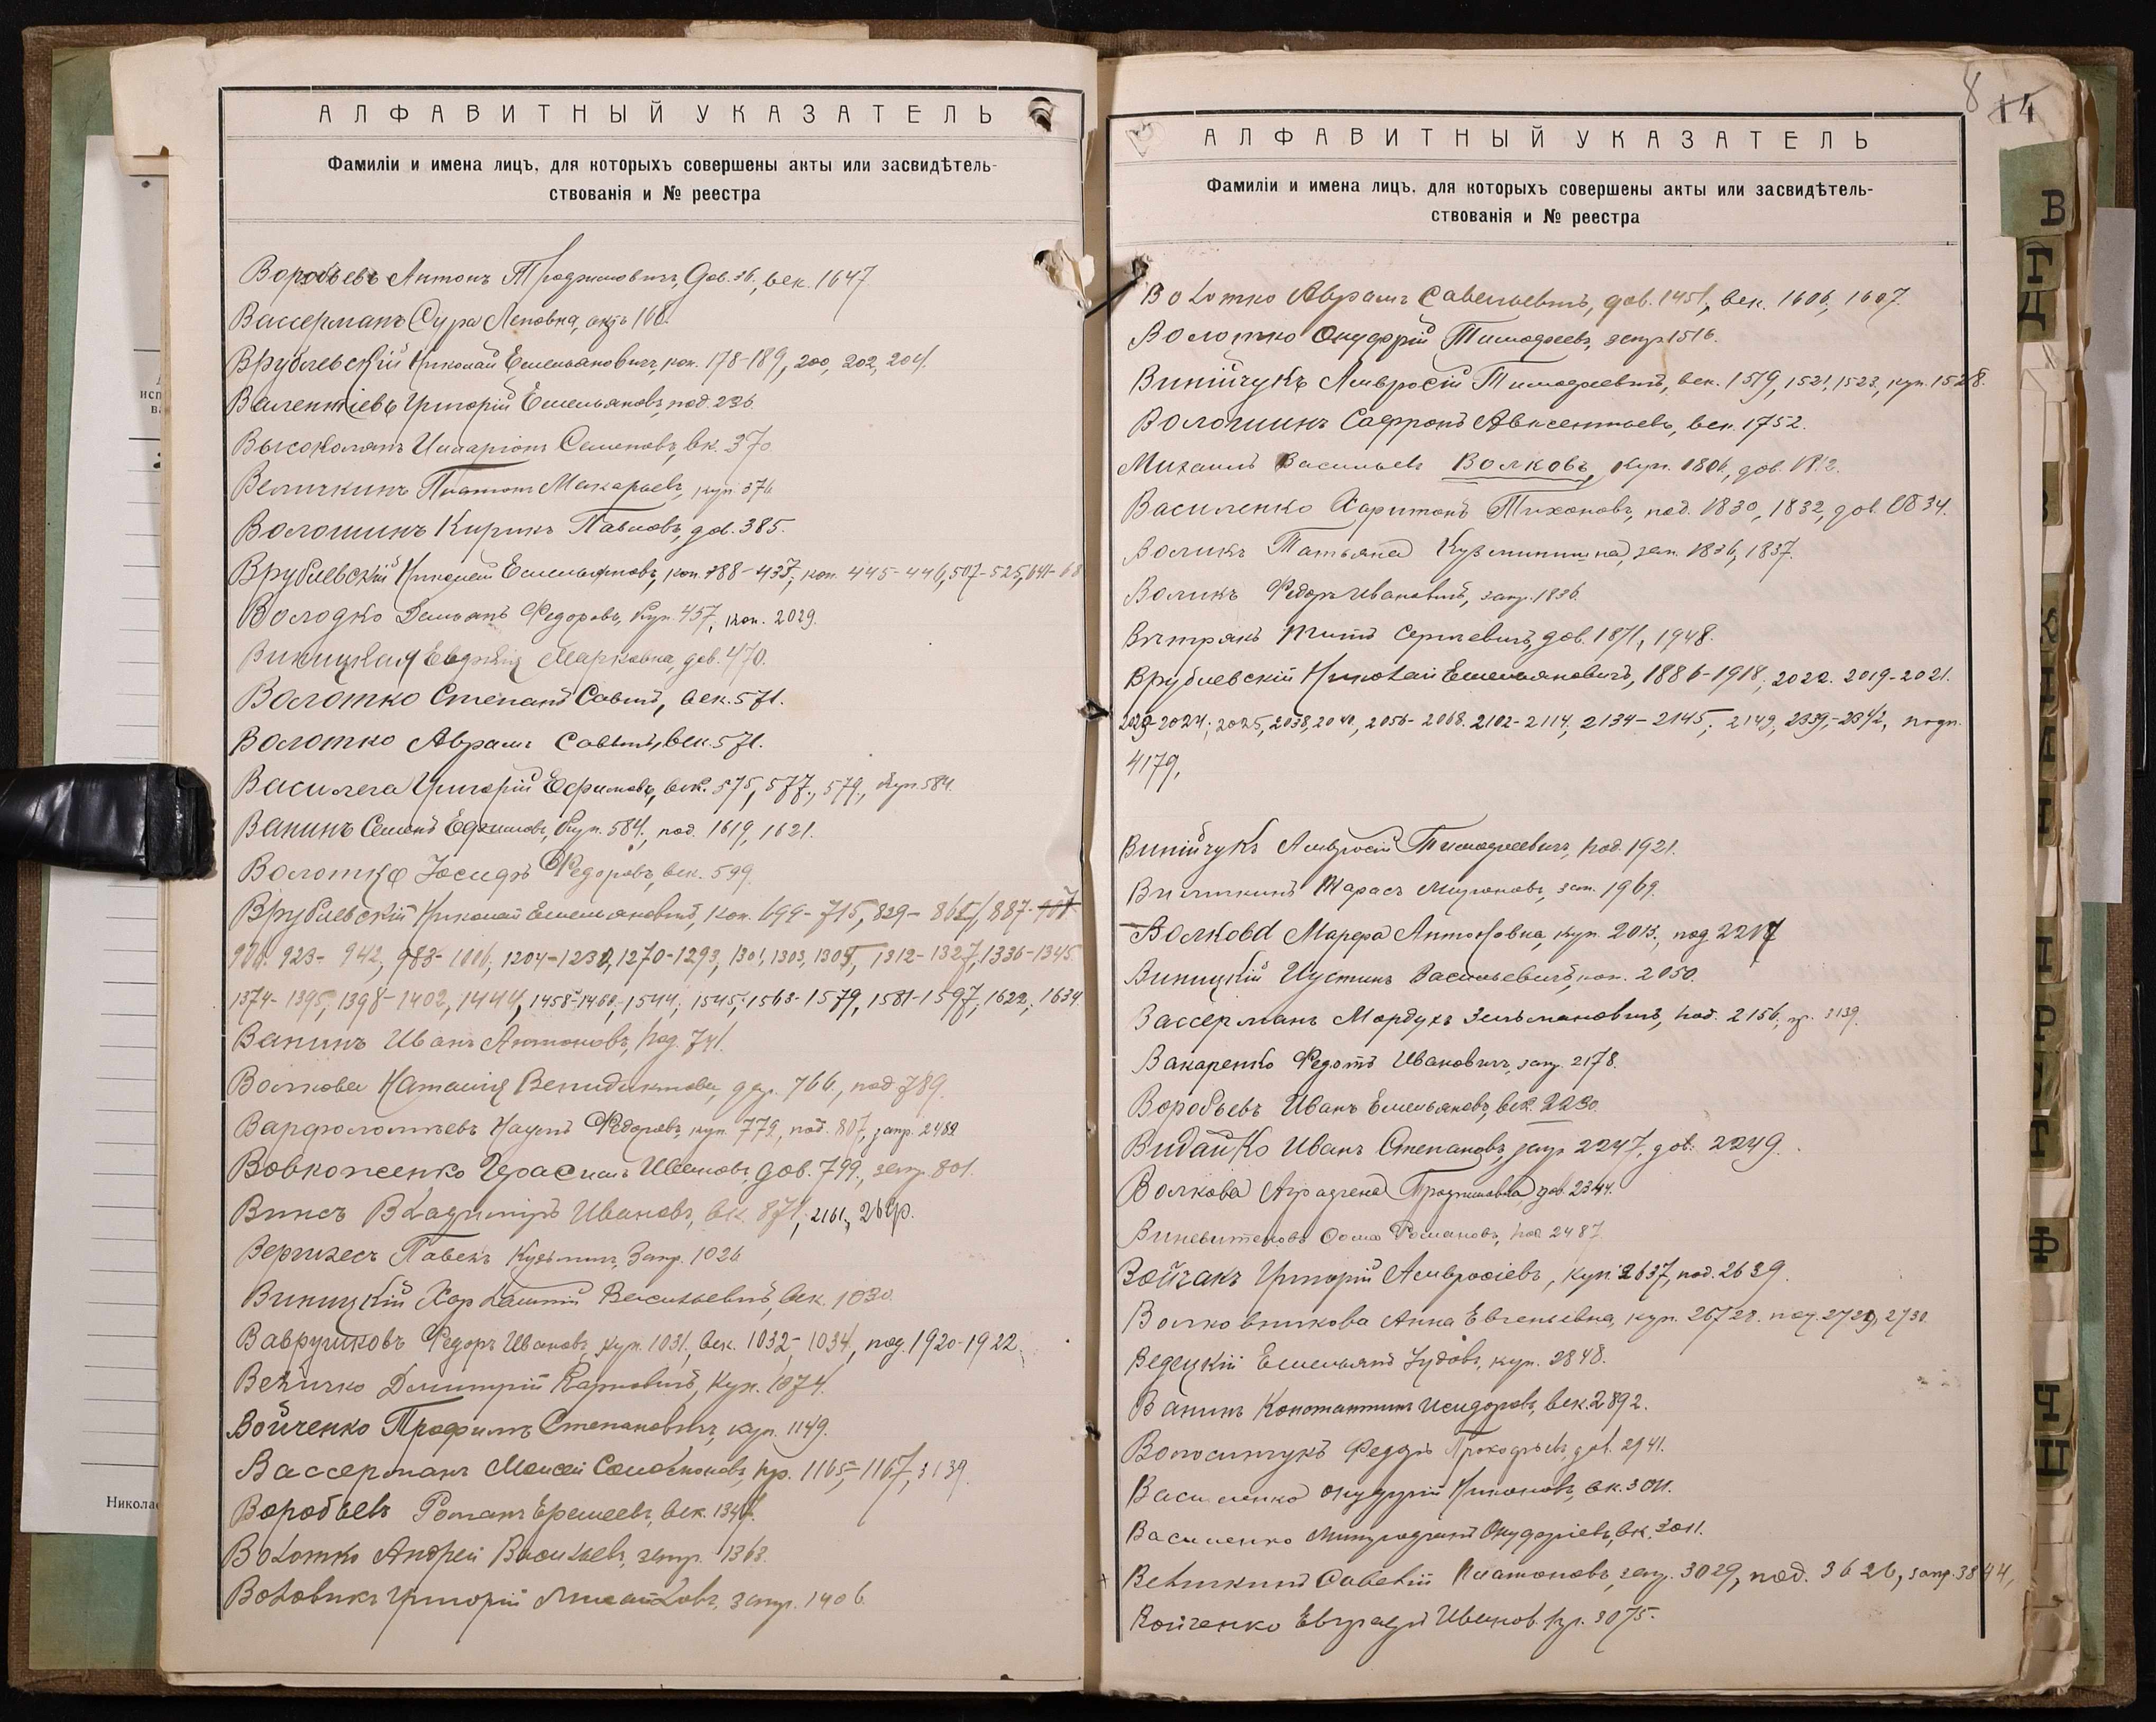 АЛФАВИТНЫЙ УКАЗАТЕЛЬ
Фамиліи и имена лицъ, для которыхъ совершены акты или засвидѣтель-
ствованія и № реестра
Воробьевъ Антонъ Трофимовичъ, Дов. 36, век. 1647
Вассерманъ Сура Леповна, актъ 168.
Врублевскій Николай Емельяновичъ, коп. 178-189, 200, 202, 204.
Валентіевъ Григорій Емельяновъ, под. 236
Иларіонъ Семеновъ, вк. 370.
Величкинъ Платонъ Макарьевъ, куп. 376
Волошинъ Кирикъ Павловъ, дов. 385.
Врублевскій Николай Емельяновъ, коп. 388-437, коп. 445-446, 507-525,
Володко Демьянъ Федоровъ, куп. 457, коп. 2029.
Виницкая Евфимія Марковна, дов. 470.
Волотко Степанъ Савичъ, век. 571.
Волотко Аврамъ Савичъ, век. 571.
Василега Григорій Ефимовъ, век. 575, 577, 579, куп. 584.
Ванинъ Семенъ Ефимовъ, куп. 584, под. 1619, 1621.
Волотко Іосифъ Федоровъ, век. 599.
Врублевскій Николай Емельяновичъ, коп. 699-715, 829- 887-
923-942, 983-1006, 1204-1230, 1270-1293, 1301, 1303, 1305, 1312-1327, 1336-1345.
1374-1395, 1398-1402, 1444, 1458-1460, 1544, 1545, 1563-1579, 1581-1597, 1622, 1634
Ванинъ Иванъ Антоновъ, под. 741.
Волкова Наталія Венидиктова, 766, под 789.
Варфоломѣевъ Наумъ Федоровъ, куп. 779, под. 807, запр. 2489
Вовкоженко Герасимъ Ивановъ, дов. 799, запр. 801.
Винсъ Владимиръ Ивановъ, вк. 871, 2161,
Вергилесъ Павелъ Кузьмичъ, Запр. 1026
Виницкій Харлампій Васильевичъ, век. 1030
Ваврушковъ Федоръ Ивановъ, куп. 1031, век. 1032-1034, под. 1920-1922.
Величко Дмитрій Карповичъ, куп. 1074.
Войченко Трофимъ Степановичъ, куп. 1149.
Вассерманъ Моисей Соломоновъ, пр. 1165-1167, 3139.
Воробьевъ Романъ Еремеевъ, век. 1347.
Волотко Андрей Васильевъ, запр. 1363.
Воловикъ Григорій Михайловъ, запр. 1406.
8 14
АЛФАВИТНЫЙ УКАЗАТЕЛЬ
Фамиліи и имена лицъ, для которыхъ совершены акты или засвидѣтель-
ствованія и № реестра
Волотко Аврамъ Савельевичъ, дов. 1451, век. 1606, 1607.
Волотко Онуфрій Тимофеевъ, запр. 1516.
Винійчукъ Амвросій Тимофеевичъ, век. 1519, 1521, 1523, куп. 1528.
Волошинъ Сафронъ Авксентьевъ, век. 1752.
Михаилъ Васильевъ Волковъ, куп. 1806, дов.
Василенко Харитонъ Тихоновъ, под. 1830, 1832, дов. 1834.
Воликъ Татьяна Кузьминишна, зап. 1836, 1837.
Воликъ Федоръ Ивановичъ, запр. 1836.
Вѣтрякъ Титъ Сергѣевичъ, дов. 1871, 1948.
Врублевскій Николай Емельяновичъ, 1886-1918, 2022. 2019-2021.
2023-2024, 2025, 2038, 2040, 2056-2068. 2102-2114, 2134-2145, 2149, 2339-2342, подп.
4179,
Винійчукъ Амвросій Тимофеевичъ, под. 1921.
Виличкинъ Тарасъ Мироновъ, зап. 1969.
Волкова Марфа Антоновна, куп. 2013, под 2217
Виницкій Иустинъ Васильевичъ, коп. 2050.
Вассерманъ Мордухъ Зельмановичъ, под. 2156, пр. 3139.
Вакаренко Федотъ Ивановичъ, запр. 2178.
Воробьевъ Иванъ Емельяновъ, век. 2230
Видайко Иванъ Степановъ, запр 2247, дов. 2249.
Волкова Аграфена Трофимовна, дов. 2344.
Виневитиновъ Фома Романовъ, под. 2487
Войчакъ Григорій Амвросіевъ, куп. 2637, под. 2639.
Волковникова Анна Евгеньевна, куп. под. 2729, 2730.
Ведецкій Емельянъ Іудовъ, куп. 2848.
Ванинъ Константинъ Исидоровъ, век. 2892.
Волосинчукъ Федоръ Прокофьевъ, дов. 2941.
Василенко Онуфрій Никоновъ, вк. 3011.
Василенко Митрофанъ Онуфріевъ, вк. 3011.
Величкинъ Савелій Платоновъ, запр. 3029, под. 3626, запр. 3844,
Войченко Евграфъ Иванов. пр. 3075.
В
Г
Д
К
Н
Р
Т
Ф
Ч
Николас